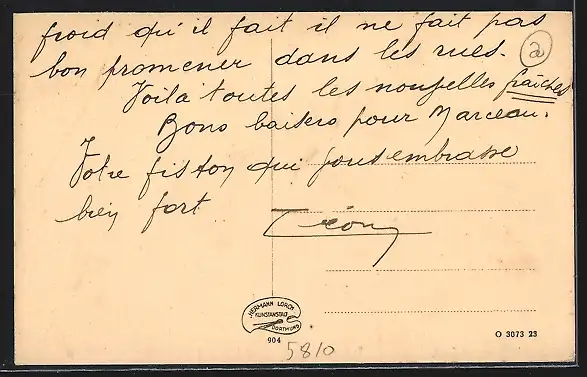 froid qu'il fait il ne fait pas
bon promener dans les rues.
Voilà toutes les nouvelles fraîches
Bons baisers pour Marceau.
Votre fiston qui vous embrasse
bien fort
Léon
HERMANN LORCH
KUNSTANSTALT
DORTMUND
904
5810
O 3073 23